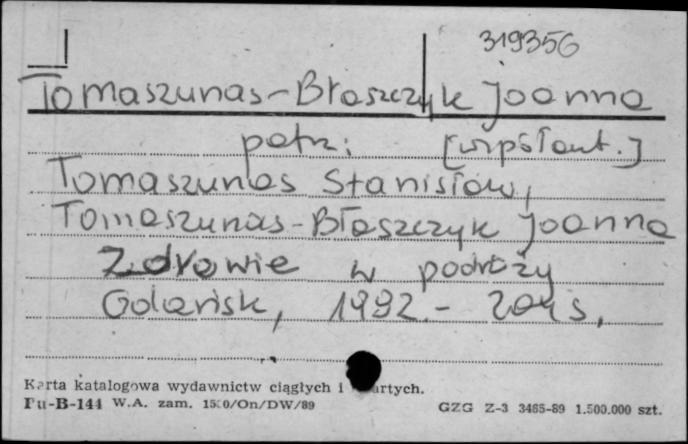 319356
Tomaszunas-Błaszczyk Joanna
patrz: [współaut.]
Tomaszunas Stanisław,
Tomaszunas-Błaszczyk Joanna
Zdrowie w podróży
Gdańsk, 1992.- 204 s.
Karta katalogowa wydawnictw ciągłych i artych.
Pu-B-144 W.A. zam. 1500/On/DW/89 GZG Z-3 3465-89 1.500.000 szt.